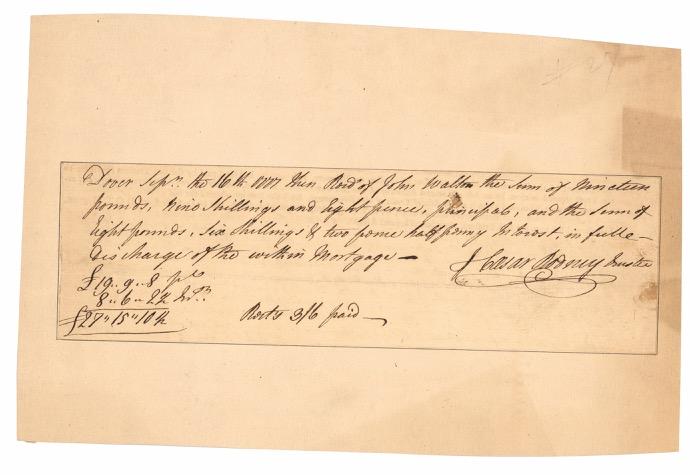 # 27
Dover Sepr. the 16th 1777 then Recd. of John Walton the sum of Nineteen
pounds, Nine Shillings and Eight pence, principal, and the sum of
Eight pounds, Six Shillings & two pence half penny Interest, in full
discharge of the within Mortgage —
Cæsar Rodney Trustee
£19.. 9.. 8 pl.
8.. 6.. 2½ Int.
£27.. 15.. 10½
3/6 paid —